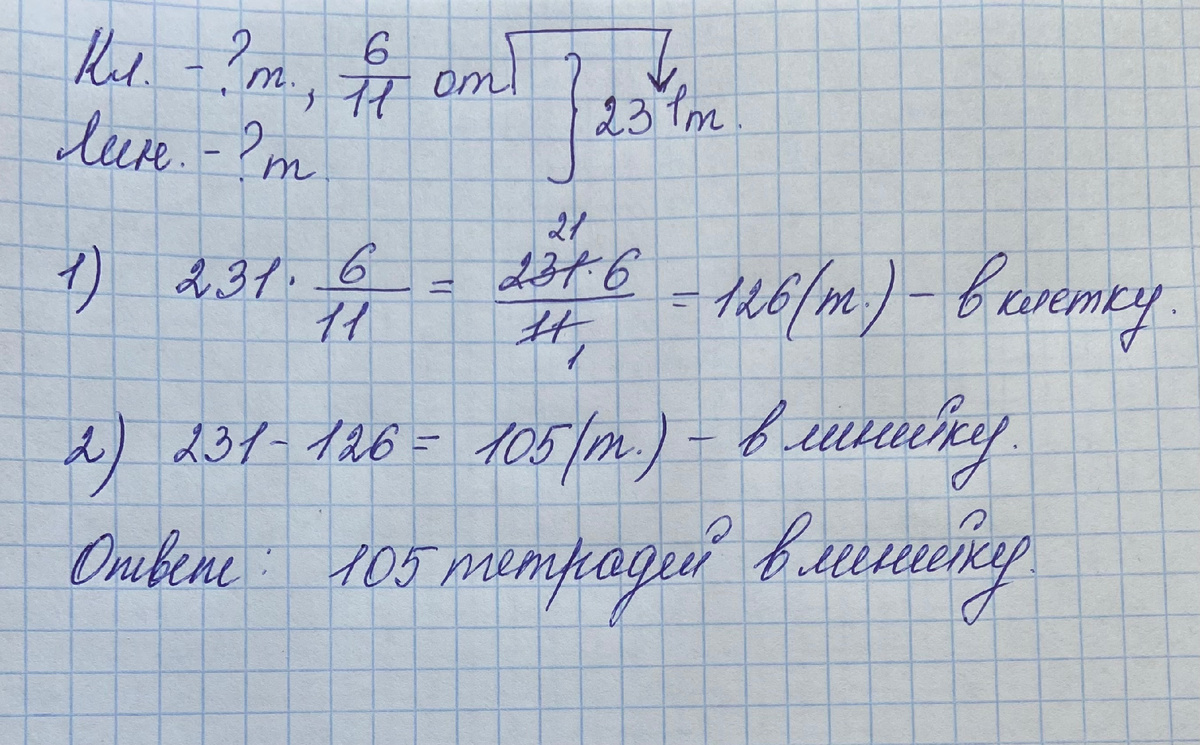 Кл. - ? т., 6/11 от } 231 т.
Лин. - ? т.
1) 231 · 6/11 = 231 · 6/11 = 126 (т.) - в клетку.
21
1
2) 231 - 126 = 105 (т.) - в линийку.
Ответ: 105 тетрадей в линийку.